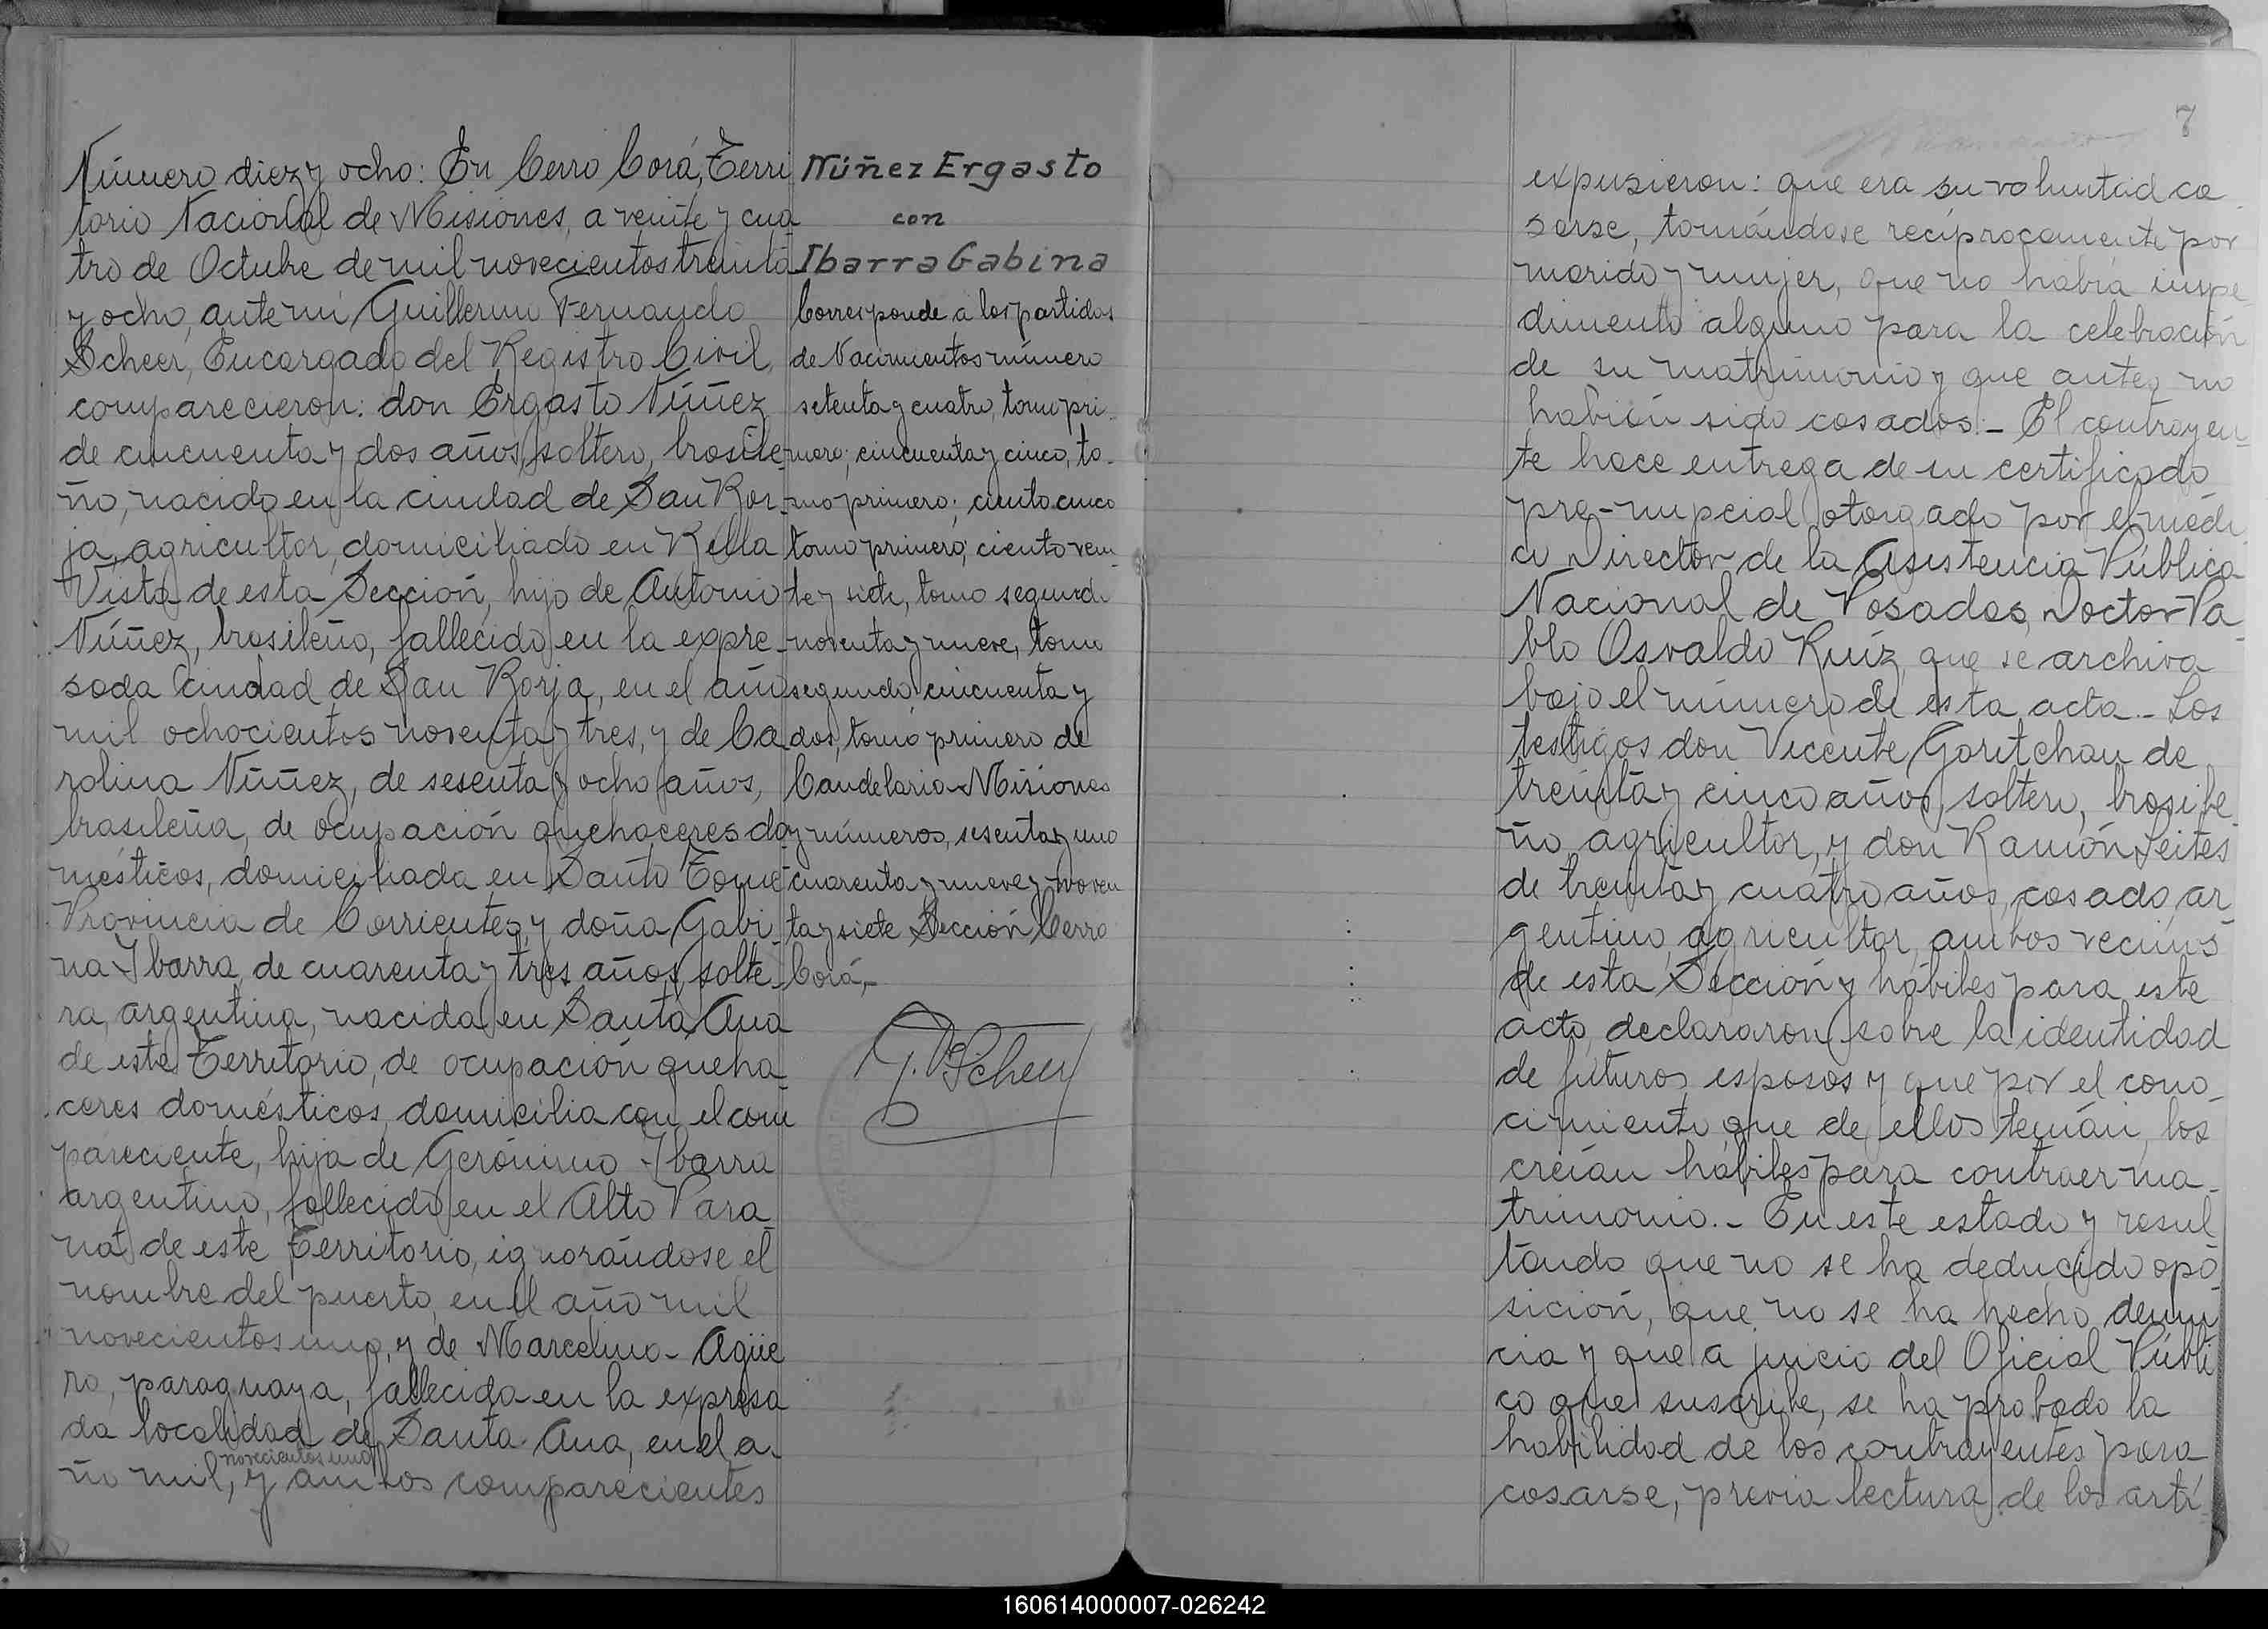 Número diez y ocho: En Cerro Corá, Terri
torio Nacional de Misiones, a veinte y cua
tro de Octubre de mil novecientos treinta
y ocho, ante mí Guillermo Fernando
Scheer, Encargado del Registro Civil,
comparecieron: don Ergasto Núñez
de cincuenta y dos años, soltero, brasile-
ño, nacido en la ciudad de San Bor-
ja, agricultor, domiciliado en Bella
Vista de esta Sección, hijo de Antonio
Núñez, brasileño, fallecido en la expre-
sada Ciudad de San Borja, en el año
mil ochocientos noventa y tres, y de Ca
rolina Núñez, de sesenta y ocho años,
brasileña, de ocupación quehaceres do-
mésticos, domiciliada en Santo Tomé
Provincia de Corrientes, y doña Gabi-
na Ibarra, de cuarenta y tres años, solte-
ra, argentina, nacida en Santa Ana
de este Territorio, de ocupación queha-
ceres domésticos, domicilia con el com
pareciente, hija de Gerónimo Ibarra
argentino, fallecido en el Alto Para-
ná de este Territorio, ignorándose el
nombre del puerto, en el año mil
novecientos uno, y de Marcelina Agüe
ro, paraguaya, fallecida en la expresa
da localidad de Santa Ana, en el a-
novecientos uno
ño mil, y ambos comparecientes
Núñez Ergasto
con
Ibarra Gabina
Corresponde a las partidas
de Nacimientos número
setenta y cuatro, tomo pri-
mero; cincuenta y cinco, to-
mo primero; ciento cinco
tomo primero; ciento vein-
te y siete, tomo segundo
noventa y nueve, tomo
segundo, cincuenta y
dos, tomo primero de
Candelaria-Misiones
y números, sesenta y uno
cuarenta y nueve y noven
ta y siete Sección Cerro
Corá,-
G. F. Scheer
7
expusieron: que era su voluntad ca
sarse, tomándose recíprocamente por
marido y mujer, que no había impe
dimento alguno para la celebración
de su matrimonio y que antes no
habían sido casados.- El contrayen-
te hace entrega de un certificado
pre-nupcial otorgado por el médi
co Director de la Asistencia Pública
Nacional de Posadas, Doctor Pa-
blo Osvaldo Ruíz, que se archiva
bajo el número de esta acta.- Los
testigos don Vicente Goritchau de
treinta y cinco años, soltero, brasile-
ño agricultor, y don Ramón Leites
de treinta y cuatro años, casado, ar-
gentino, agricultor, ambos vecinos
de esta Sección y hábiles para este
acto, declararon sobre la identidad
de futuros esposos y que por el cono-
cimiento que de ellos tenían, los
creían hábiles para contraer ma-
trimonio.- En este estado y resul
tando que no se ha deducido opo
sición, que no se ha hecho denun
cia y que a juicio del Oficial Públi
co que suscribe, se ha probado la
habilidad de los contrayentes para
casarse, previa lectura de los artí-
160614000007-026242